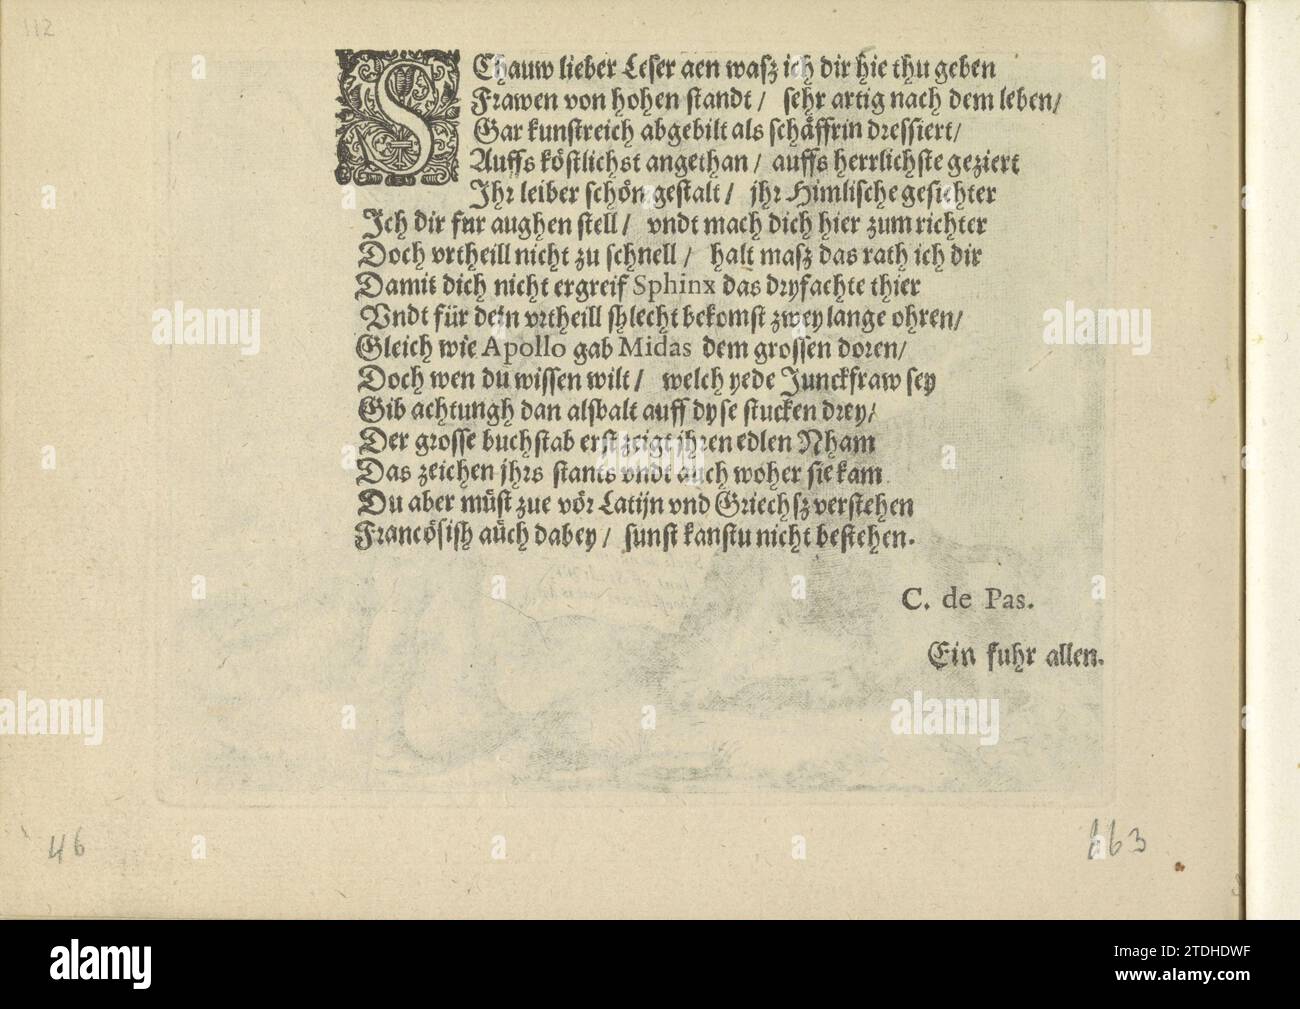 112
SChauw lieber Leser aen wasz ich dir hie thu geben
Frawen von hohen standt / sehr artig nach dem leben /
Gar kunstreich abgebilt als schäffrin dressiert /
Auffs köstlichst angethan / auffs herrlichste geziert
Ihr leiber schön gestalt / jhr Himlische gesichter
Ich dir fur aughen stell / vndt mach dich hier zum richter
Doch vrtheill nicht zu schnell / halt masz das rath ich dir
Damit dich nicht ergreif Sphinx das dryfachte thier
Vndt für dein vrtheill shlecht bekomst zwey lange ohren /
Gleich wie Apollo gab Midas dem grossen doren /
Doch wen du wissen wilt / welch yede Junckfraw sey
Gib achtungh dan alsbalt auff dyse stucken drey /
Der grosse buchstab erst zeigt jhren edlen Nham
Das zeichen jhrs stants vndt auch woher sie kam
Du aber müst zue vör Latijn vnd Griechsz verstehen
Francösish aüch dabey / sunst kanstu nicht bestehen.
C. de Pas.
Ein fuhr allen.
46
163
alamy
Image ID: 2TDHDWF
www.alamy.com